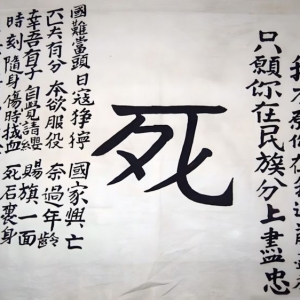 只願你在民族分上盡忠
死
國難當頭 日寇猙獰 國家興亡
匹夫有分 本欲服役 奈過年齡
幸吾有子 自覺請纓 賜旗一面
時刻隨身 傷時拭血 死后裹身